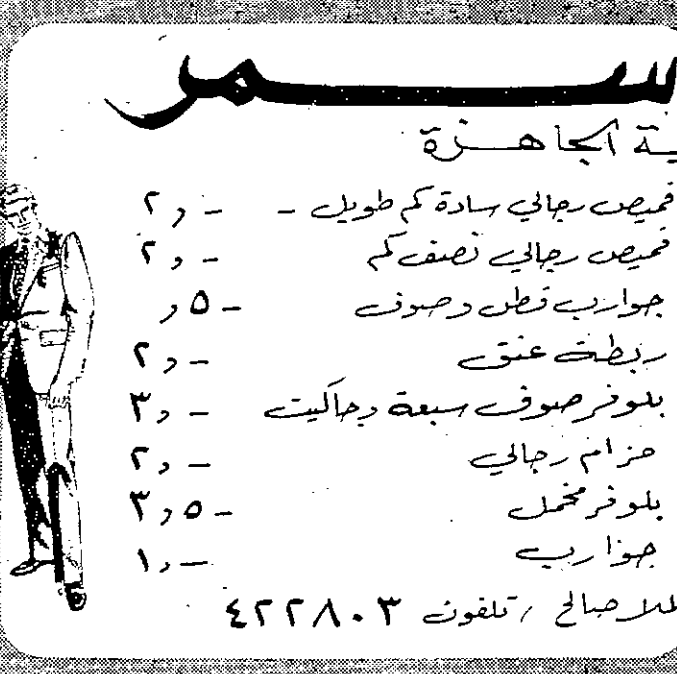 سمر
ـية الجاهزة
قميص رجالي سادة كم طويل - - ر٢
قميص رجالي نصف كم - ر٢
جوارب قطن وصوف -٥ر
ربطة عنق - ر٢
بلوفر صوف سبعة وجاكيت - ر٣
حزام رجالي - ر٢
بلوفر مخمل -٥ر٣
جوارب -ر١
صالح / تلفون ٤٢٢٨٠٣